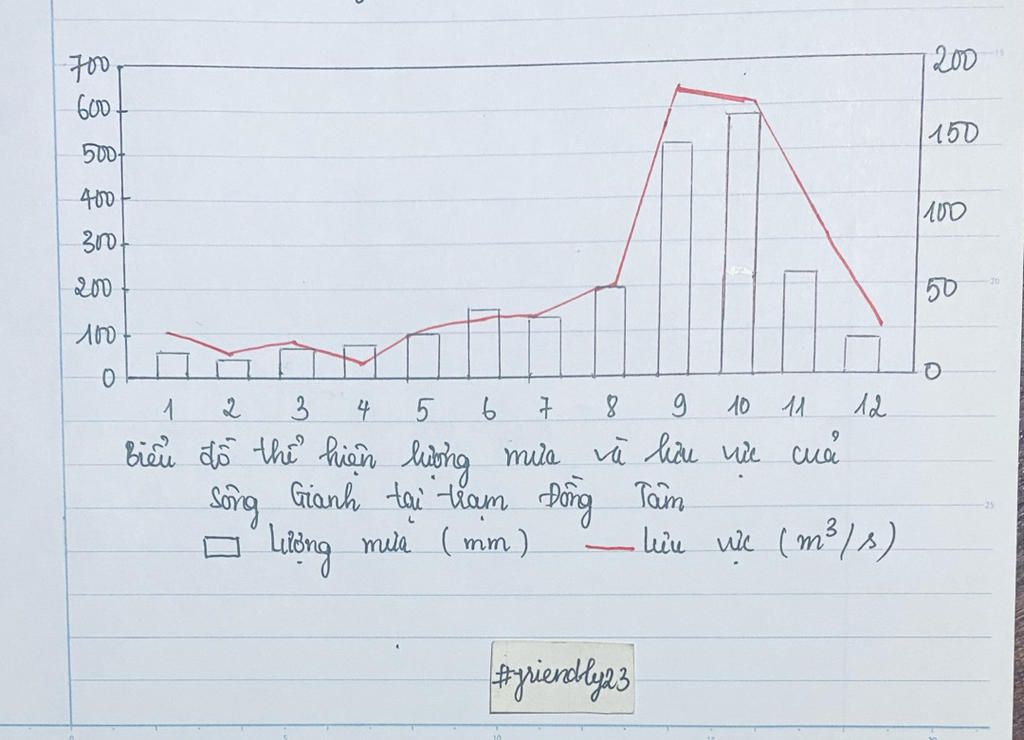 700 200
600
500 150
400
300 100
200 50
100
0 0
1 2 3 4 5 6 7 8 9 10 11 12
Biểu đồ thể hiện lượng mưa và lưu vực cuả
sông Gianh tại trạm Đồng Tâm
lượng mưa (mm) lưu vực (m³/s)
#friendly23